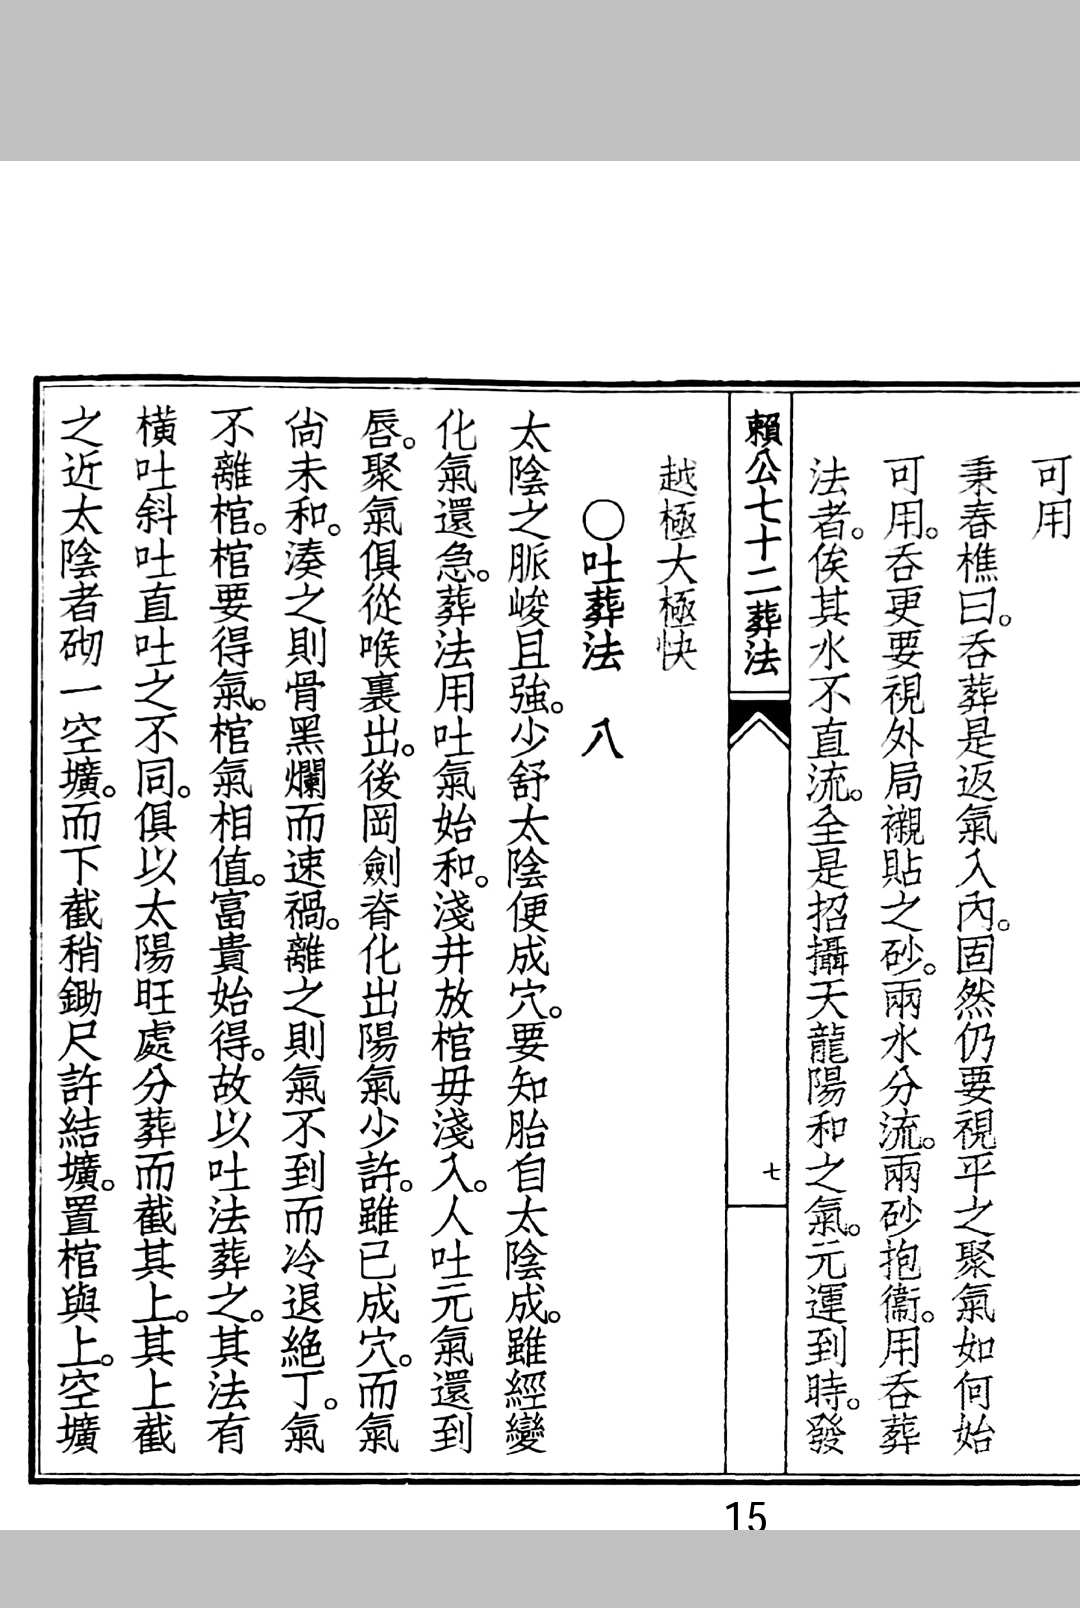 可用
秉春樵曰。吞葬是返氣入內。固然仍要視平之聚氣如何始
可用。吞更要視外局襯貼之砂。兩水分流。兩砂抱衞。用吞葬
法者。俟其水不直流。全是招攝天龍陽和之氣。元運到時。發
賴公七十二葬法
七
越極大極快
○吐葬法 八
太陰之脈峻且強。少舒太陰便成穴。要知胎自太陰成。雖經變
化氣還急。葬法用吐氣始和。淺井放棺毋淺入。人吐元氣還到
唇。聚氣俱從喉裏出。後岡劍脊化出陽氣少許。雖已成穴。而氣
尙未和。湊之則骨黑爛而速禍。離之則氣不到而冷退絕丁。氣
不離棺。棺要得氣。棺氣相值。富貴始得。故以吐法葬之。其法有
橫吐斜吐直吐之不同。俱以太陽旺處分葬而截其上。其上截
之近太陰者砌一空壙。而下截稍鋤尺許結壙。置棺與上。空壙
15